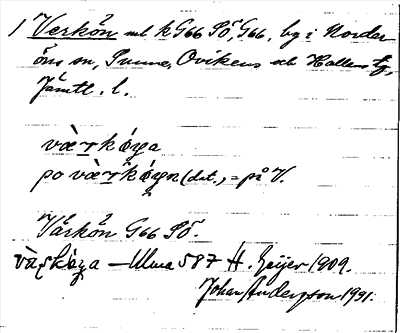 1 Verkön enl. k G66 SÖ, G66, by i Norder
öns sn, Sunne, Ovikens och Hallens tg,
Jämtl. l.
vàrkǫ́ya
po vàrkǫ́yn (dat.) = på V.
Várkön G66 SÖ.
vàrkǫya — Ulma 587 H. Geijer 1909.
Johan Anderson 1921.